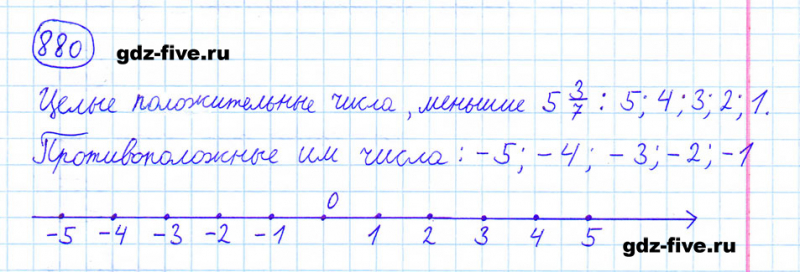 880
gdz-five.ru
Целые положительные числа, меньшие 5 3/7 : 5; 4; 3; 2; 1.
Противоположные им числа: -5; -4; -3; -2; -1
0
-5 -4 -3 -2 -1 1 2 3 4 5
gdz-five.ru